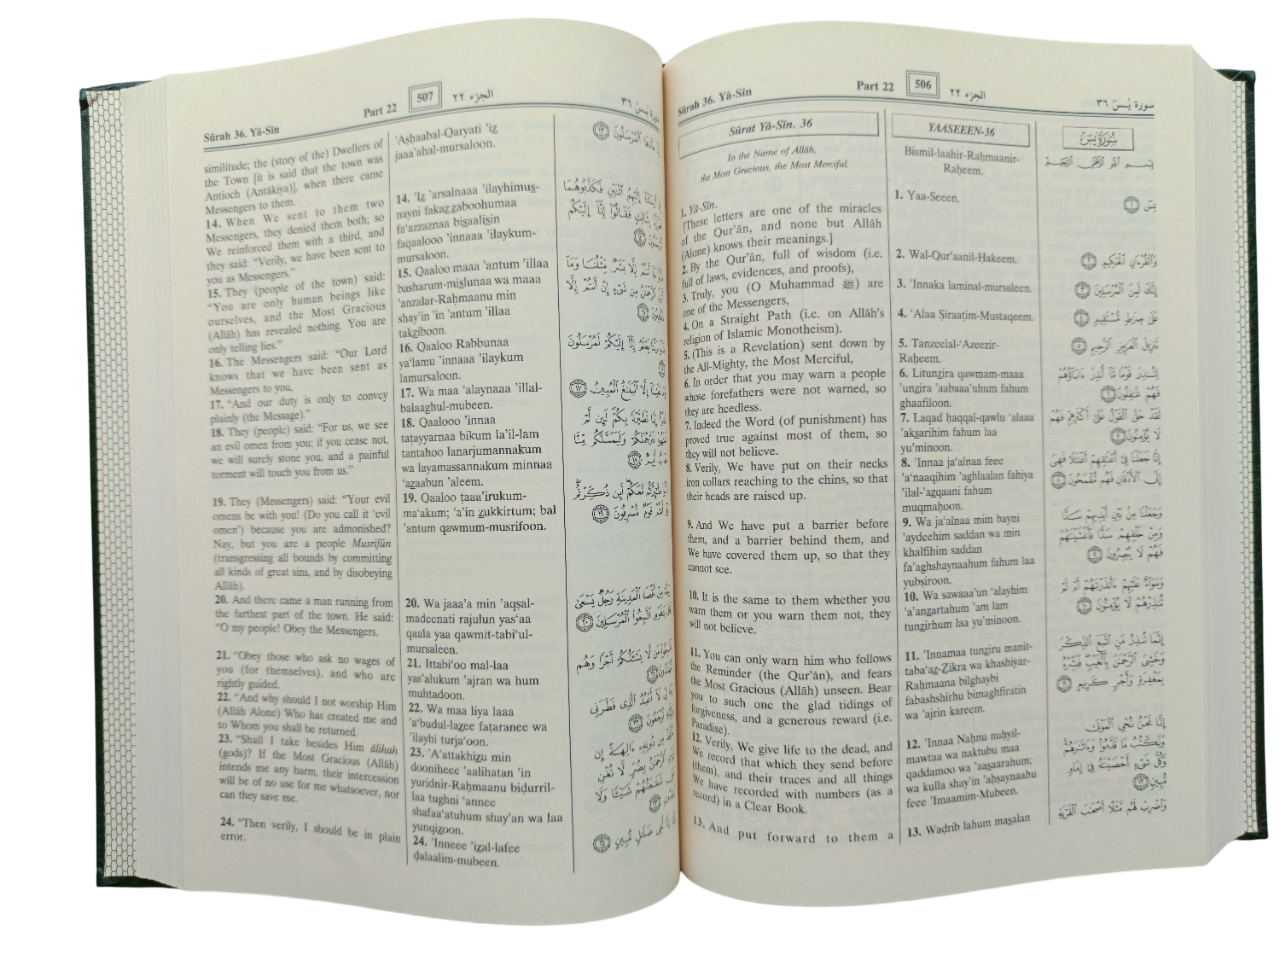 Sûrah 36. Yâ-Sîn
Part 22
506
الجزء ٢٢
سورة يٰسٓ ٣٦
Sûrat Yâ-Sîn. 36
In the Name of Allâh,
the Most Gracious, the Most Merciful.
1. Yâ-Sîn.
[These letters are one of the miracles
of the Qur'ân, and none but Allâh
(Alone) knows their meanings.]
2. By the Qur'ân, full of wisdom (i.e.
full of laws, evidences, and proofs),
3. Truly, you (O Muhammad ﷺ) are
one of the Messengers,
4. On a Straight Path (i.e. on Allâh's
religion of Islamic Monotheism).
5. (This is a Revelation) sent down by
the All-Mighty, the Most Merciful,
6. In order that you may warn a people
whose forefathers were not warned, so
they are heedless.
7. Indeed the Word (of punishment) has
proved true against most of them, so
they will not believe.
8. Verily, We have put on their necks
iron collars reaching to the chins, so that
their heads are raised up.
9. And We have put a barrier before
them, and a barrier behind them, and
We have covered them up, so that they
cannot see.
10. It is the same to them whether you
warn them or you warn them not, they
will not believe.
11. You can only warn him who follows
the Reminder (the Qur'ân), and fears
the Most Gracious (Allâh) unseen. Bear
you to such one the glad tidings of
forgiveness, and a generous reward (i.e.
Paradise).
12. Verily, We give life to the dead, and
We record that which they send before
(them), and their traces and all things
We have recorded with numbers (as a
record) in a Clear Book.
13. And put forward to them a
YAASEEEN-36
Bismil-laahir-Raḥmaanir-
Raḥeem.
1. Yaa-Seeen.
2. Wal-Qur'aanil-Ḥakeem.
3. 'Innaka laminal-mursaleen.
4. 'Alaa Ṣiraaṭim-Mustaqeem.
5. Tanzeelal-'Azeezir-
Raḥeem.
6. Litunẕira qawmam-maaa
'unẕira 'aabaaa'uhum fahum
ghaafiloon.
7. Laqad ḥaqqal-qawlu 'alaaa
'aks̱arihim fahum laa
yu'minoon.
8. 'Innaa ja'alnaa feee
'a'naaqihim 'aghlaalan fahiya
'ilal-'aẕqaani fahum
muqmaḥoon.
9. Wa ja'alnaa mim bayni
'aydeehim saddan wa min
khalfihim saddan
fa'aghshaynaahum fahum laa
yubṣiroon.
10. Wa sawaaa'un 'alayhim
'a'anẕartahum 'am lam
tunẕirhum laa yu'minoon.
11. 'Innamaa tunẕiru manit-
taba'aẕ-Ẕikra wa khashiyar-
Raḥmaana bilghaybi
fabashshirhu bimaghfiratin
wa 'ajrin kareem.
12. 'Innaa Naḥnu nuḥyil-
mawtaa wa naktubu maa
qaddamoo wa 'aas̱aarahum;
wa kulla shay'in 'aḥṣaynaahu
feee 'Imaamim-Mubeen.
13. Waḍrib lahum mas̱alan
سُورَةُ يسٓ
بِسْمِ اللَّهِ الرَّحْمَٰنِ الرَّحِيمِ
يسٓ ١
وَالْقُرْءَانِ الْحَكِيمِ ٢
إِنَّكَ لَمِنَ الْمُرْسَلِينَ ٣
عَلَىٰ صِرَاطٍ مُّسْتَقِيمٍ ٤
تَنزِيلَ الْعَزِيزِ الرَّحِيمِ ٥
لِتُنذِرَ قَوْمًا مَّا أُنذِرَ ءَابَاؤُهُمْ
فَهُمْ غَافِلُونَ ٦
لَقَدْ حَقَّ الْقَوْلُ عَلَىٰ أَكْثَرِهِمْ فَهُمْ
لَا يُؤْمِنُونَ ٧
إِنَّا جَعَلْنَا فِي أَعْنَاقِهِمْ أَغْلَالًا فَهِيَ
إِلَى الْأَذْقَانِ فَهُم مُّقْمَحُونَ ٨
وَجَعَلْنَا مِن بَيْنِ أَيْدِيهِمْ سَدًّا
وَمِنْ خَلْفِهِمْ سَدًّا فَأَغْشَيْنَاهُمْ
فَهُمْ لَا يُبْصِرُونَ ٩
وَسَوَاءٌ عَلَيْهِمْ ءَأَنذَرْتَهُمْ أَمْ لَمْ
تُنذِرْهُمْ لَا يُؤْمِنُونَ ١٠
إِنَّمَا تُنذِرُ مَنِ اتَّبَعَ الذِّكْرَ
وَخَشِيَ الرَّحْمَٰنَ بِالْغَيْبِ فَبَشِّرْهُ
بِمَغْفِرَةٍ وَأَجْرٍ كَرِيمٍ ١١
إِنَّا نَحْنُ نُحْيِ الْمَوْتَىٰ
وَنَكْتُبُ مَا قَدَّمُوا وَءَاثَارَهُمْ
وَكُلَّ شَيْءٍ أَحْصَيْنَاهُ فِي إِمَامٍ
مُّبِينٍ ١٢
وَاضْرِبْ لَهُم مَّثَلًا أَصْحَابَ الْقَرْيَةِ
Sûrah 36. Yâ-Sîn
Part 22
507
الجزء ٢٢
سورة يٰسٓ ٣٦
similitude; the (story of the) Dwellers of
the Town [it is said that the town was
Antioch (Antâkiya)], when there came
Messengers to them.
14. When We sent to them two
Messengers, they denied them both; so
We reinforced them with a third, and
they said: "Verily, we have been sent to
you as Messengers."
15. They (people of the town) said:
"You are only human beings like
ourselves, and the Most Gracious
(Allâh) has revealed nothing. You are
only telling lies."
16. The Messengers said: "Our Lord
knows that we have been sent as
Messengers to you,
17. "And our duty is only to convey
plainly (the Message)."
18. They (people) said: "For us, we see
an evil omen from you; if you cease not,
we will surely stone you, and a painful
torment will touch you from us."
19. They (Messengers) said: "Your evil
omens be with you! (Do you call it 'evil
omen') because you are admonished?
Nay, but you are a people Musrifûn
(transgressing all bounds by committing
all kinds of great sins, and by disobeying
Allâh).
20. And there came a man running from
the farthest part of the town. He said:
"O my people! Obey the Messengers.
21. "Obey those who ask no wages of
you (for themselves), and who are
rightly guided.
22. "And why should I not worship Him
(Allâh Alone) Who has created me and
to Whom you shall be returned.
23. "Shall I take besides Him âlihah
(gods)? If the Most Gracious (Allâh)
intends me any harm, their intercession
will be of no use for me whatsoever, nor
can they save me.
24. "Then verily, I should be in plain
error.
'Aṣḥaabal-Qaryati 'iẕ
jaaa'ahal-mursaloon.
14. 'Iẕ 'arsalnaaa 'ilayhimus̱-
nayni fakaẕẕaboohumaa
fa'azzaznaa bis̱aalis̱in
faqaalooo 'innaaa 'ilaykum-
mursaloon.
15. Qaaloo maaa 'antum 'illaa
basharum-mis̱lunaa wa maaa
'anzalar-Raḥmaanu min
shay'in 'in 'antum 'illaa
takẕiboon.
16. Qaaloo Rabbunaa
ya'lamu 'innaaa 'ilaykum
lamursaloon.
17. Wa maa 'alaynaaa 'illal-
balaaghul-mubeen.
18. Qaalooo 'innaa
taṭayyarnaa bikum la'il-lam
tantahoo lanarjumannakum
wa layamassannakum minnaa
'aẕaabun 'aleem.
19. Qaaloo ṭaaa'irukum-
ma'akum; 'a'in ẕukkirtum; bal
'antum qawmum-musrifoon.
20. Wa jaaa'a min 'aqṣal-
madeenati rajulun yas'aa
qaala yaa qawmit-tabi'ul-
mursaleen.
21. Ittabi'oo mal-laa
yas'alukum 'ajran wa hum
muhtadoon.
22. Wa maa liya laaa
'a'budul-laẕee faṭaranee wa
'ilayhi turja'oon.
23. 'A'attakhiẕu min
dooniheee 'aalihatan 'in
yuridnir-Raḥmaanu biḍurril-
laa tughni 'annee
shafaa'atuhum shay'an wa laa
yunqiẕoon.
24. 'Inneee 'iẕal-lafee
ḍalaalim-mubeen.